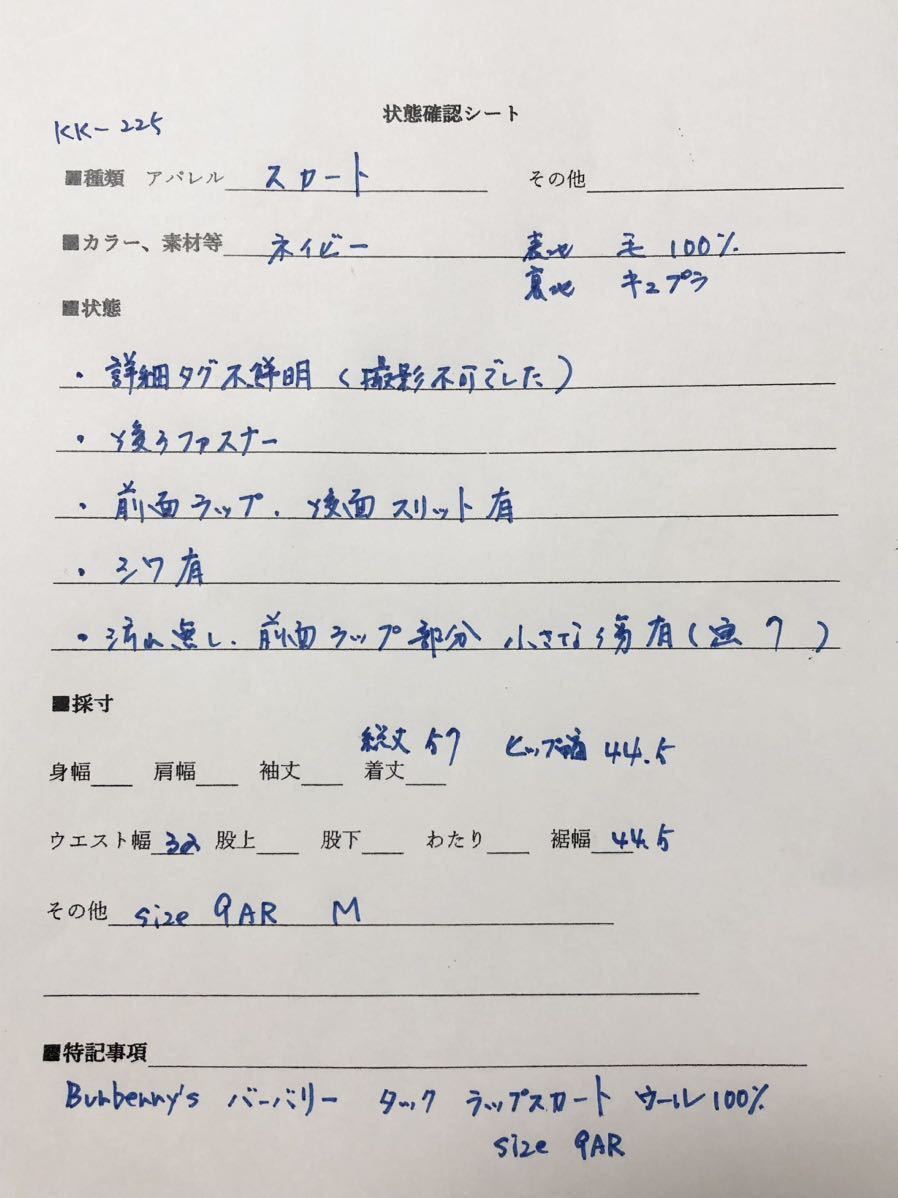 状態確認シート
KK-225
■種類 アパレル スカート その他
■カラー、素材等 ネイビー 表地 毛 100%
裏地 キュプラ
■状態
・詳細タグ不鮮明(撮影不可でした)
・後ろファスナー
・前面ラップ、後面スリット有
・シワ有
・汚れ無し、前面ラップ部分 小さな傷有(画7)
■採寸
総丈 57 ヒップ幅 44.5
身幅 肩幅 袖丈 着丈
ウエスト幅 32 股上 股下 わたり 裾幅 44.5
その他 size 9AR M
■特記事項
Burberry's バーバリー タック ラップスカート ウール100%
size 9AR